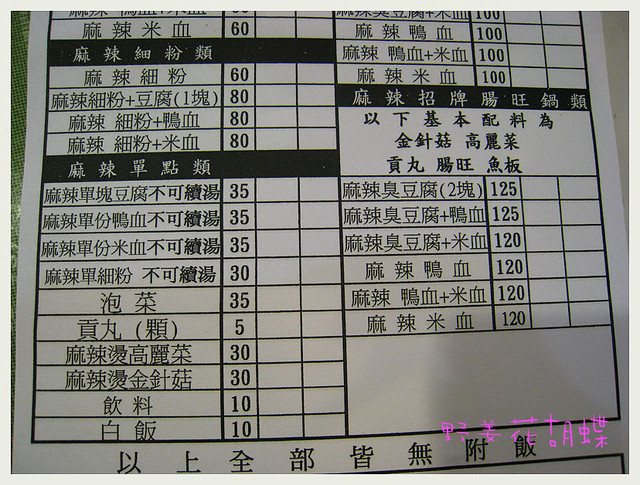 麻辣米血 60
麻辣細粉類
麻辣細粉 60
麻辣細粉+豆腐(1塊) 80
麻辣 細粉+鴨血 80
麻辣 細粉+米血 80
麻辣單點類
麻辣單塊豆腐不可續湯 35
麻辣單份鴨血不可續湯 35
麻辣單份米血不可續湯 35
麻辣單細粉 不可續湯 30
泡菜 35
貢丸(顆) 5
麻辣燙高麗菜 30
麻辣燙金針菇 30
飲料 10
白飯 10
麻辣臭豆腐+米血 100
麻辣鴨血 100
麻辣 鴨血+米血 100
麻辣米血 100
麻辣招牌腸旺鍋類
以下基本配料為
金針菇 高麗菜
貢丸 腸旺 魚板
麻辣臭豆腐(2塊) 125
麻辣臭豆腐+鴨血 125
麻辣臭豆腐+米血 120
麻辣鴨血 120
麻辣 鴨血+米血 120
麻辣米血 120
以上全部皆無附飯
野姜花胡蝶